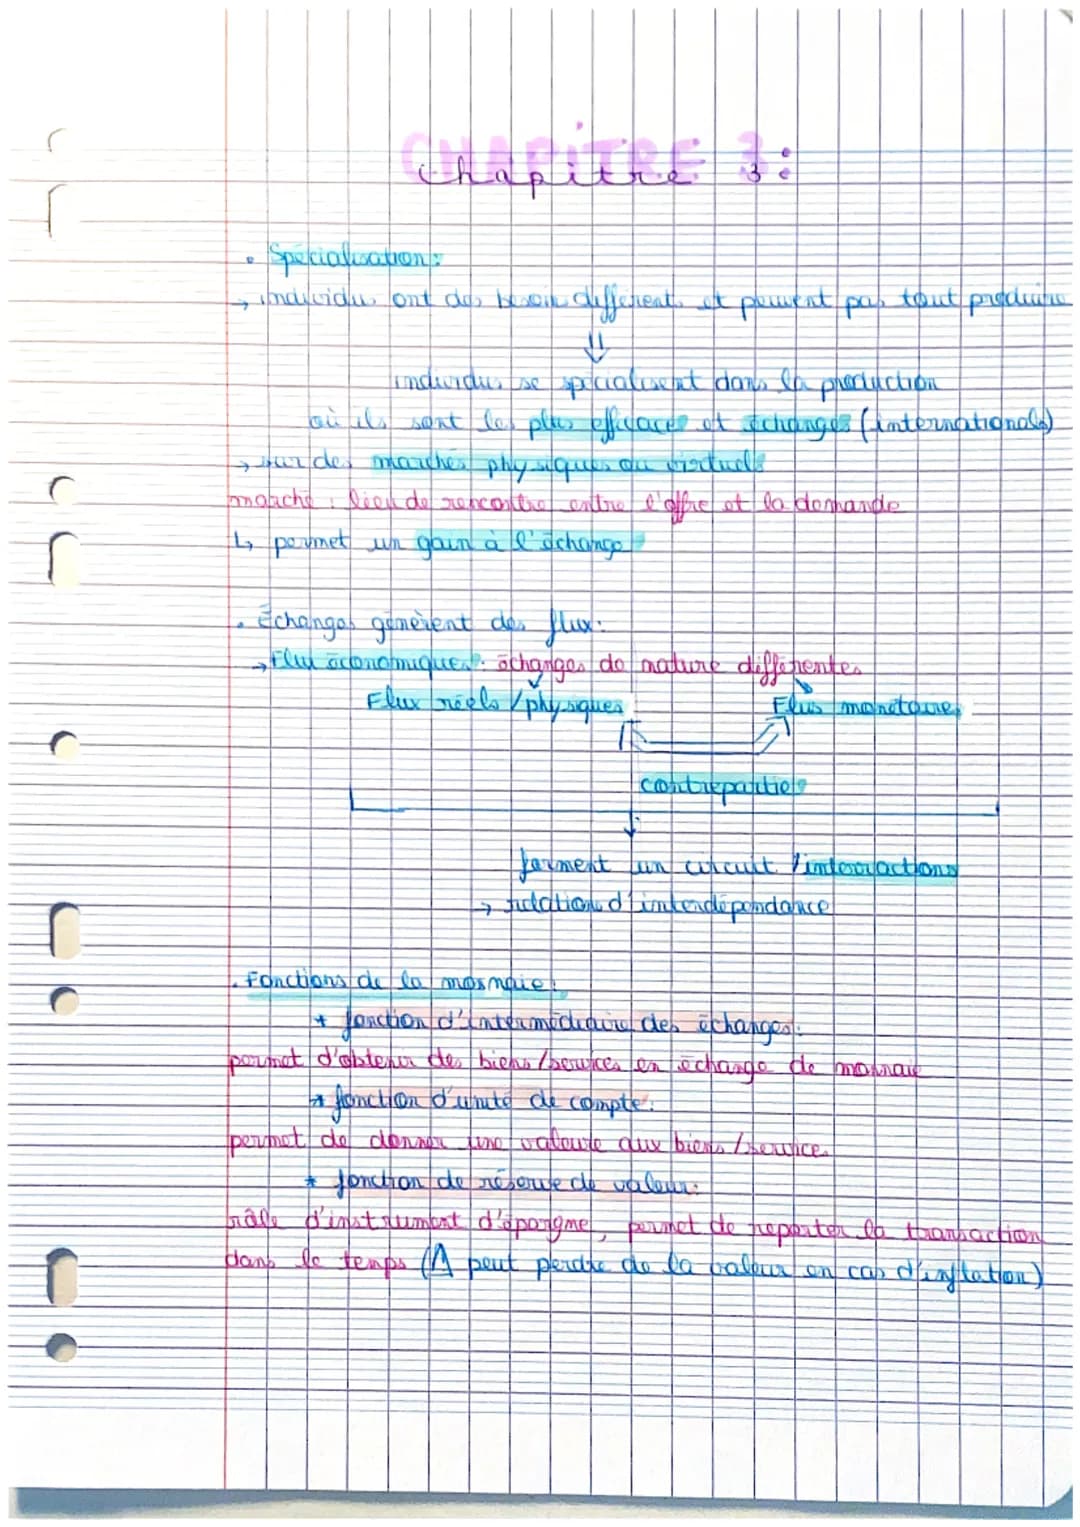 CHAPITRE 3:
Chapitre 3:
• Spécialisation:
→ individus ont des besoin différents et peuvent pas tout produire
⇓
individus se spécialisent dans la production
où ils sont les plus efficaces et échanges (internationals)
→ sur des marchés physiques ou virtuels
marché : lieu de rencontre entre l'offre et la demande
↳ permet un gain à l'échange
• Échanges génèrent des flux:
→ Flux économiques: échanges de nature différentes
Flux réels / physiques Flus monétaires
contreparties
forment un circuit / interractions
→ relation d'interdépendance
• Fonctions de la monnaie:
* fonction d'intermédiaire des échanges:
permet d'obtenir des biens/services en échange de monnaie
* fonction d'unité de compte:
permet de donner une valeure aux biens/service
* fonction de réserve de valeur:
rôle d'instrument d'épargne, permet de reporter la transaction
dans le temps (⚠ peut perdre de la valeur en cas d'inflation)